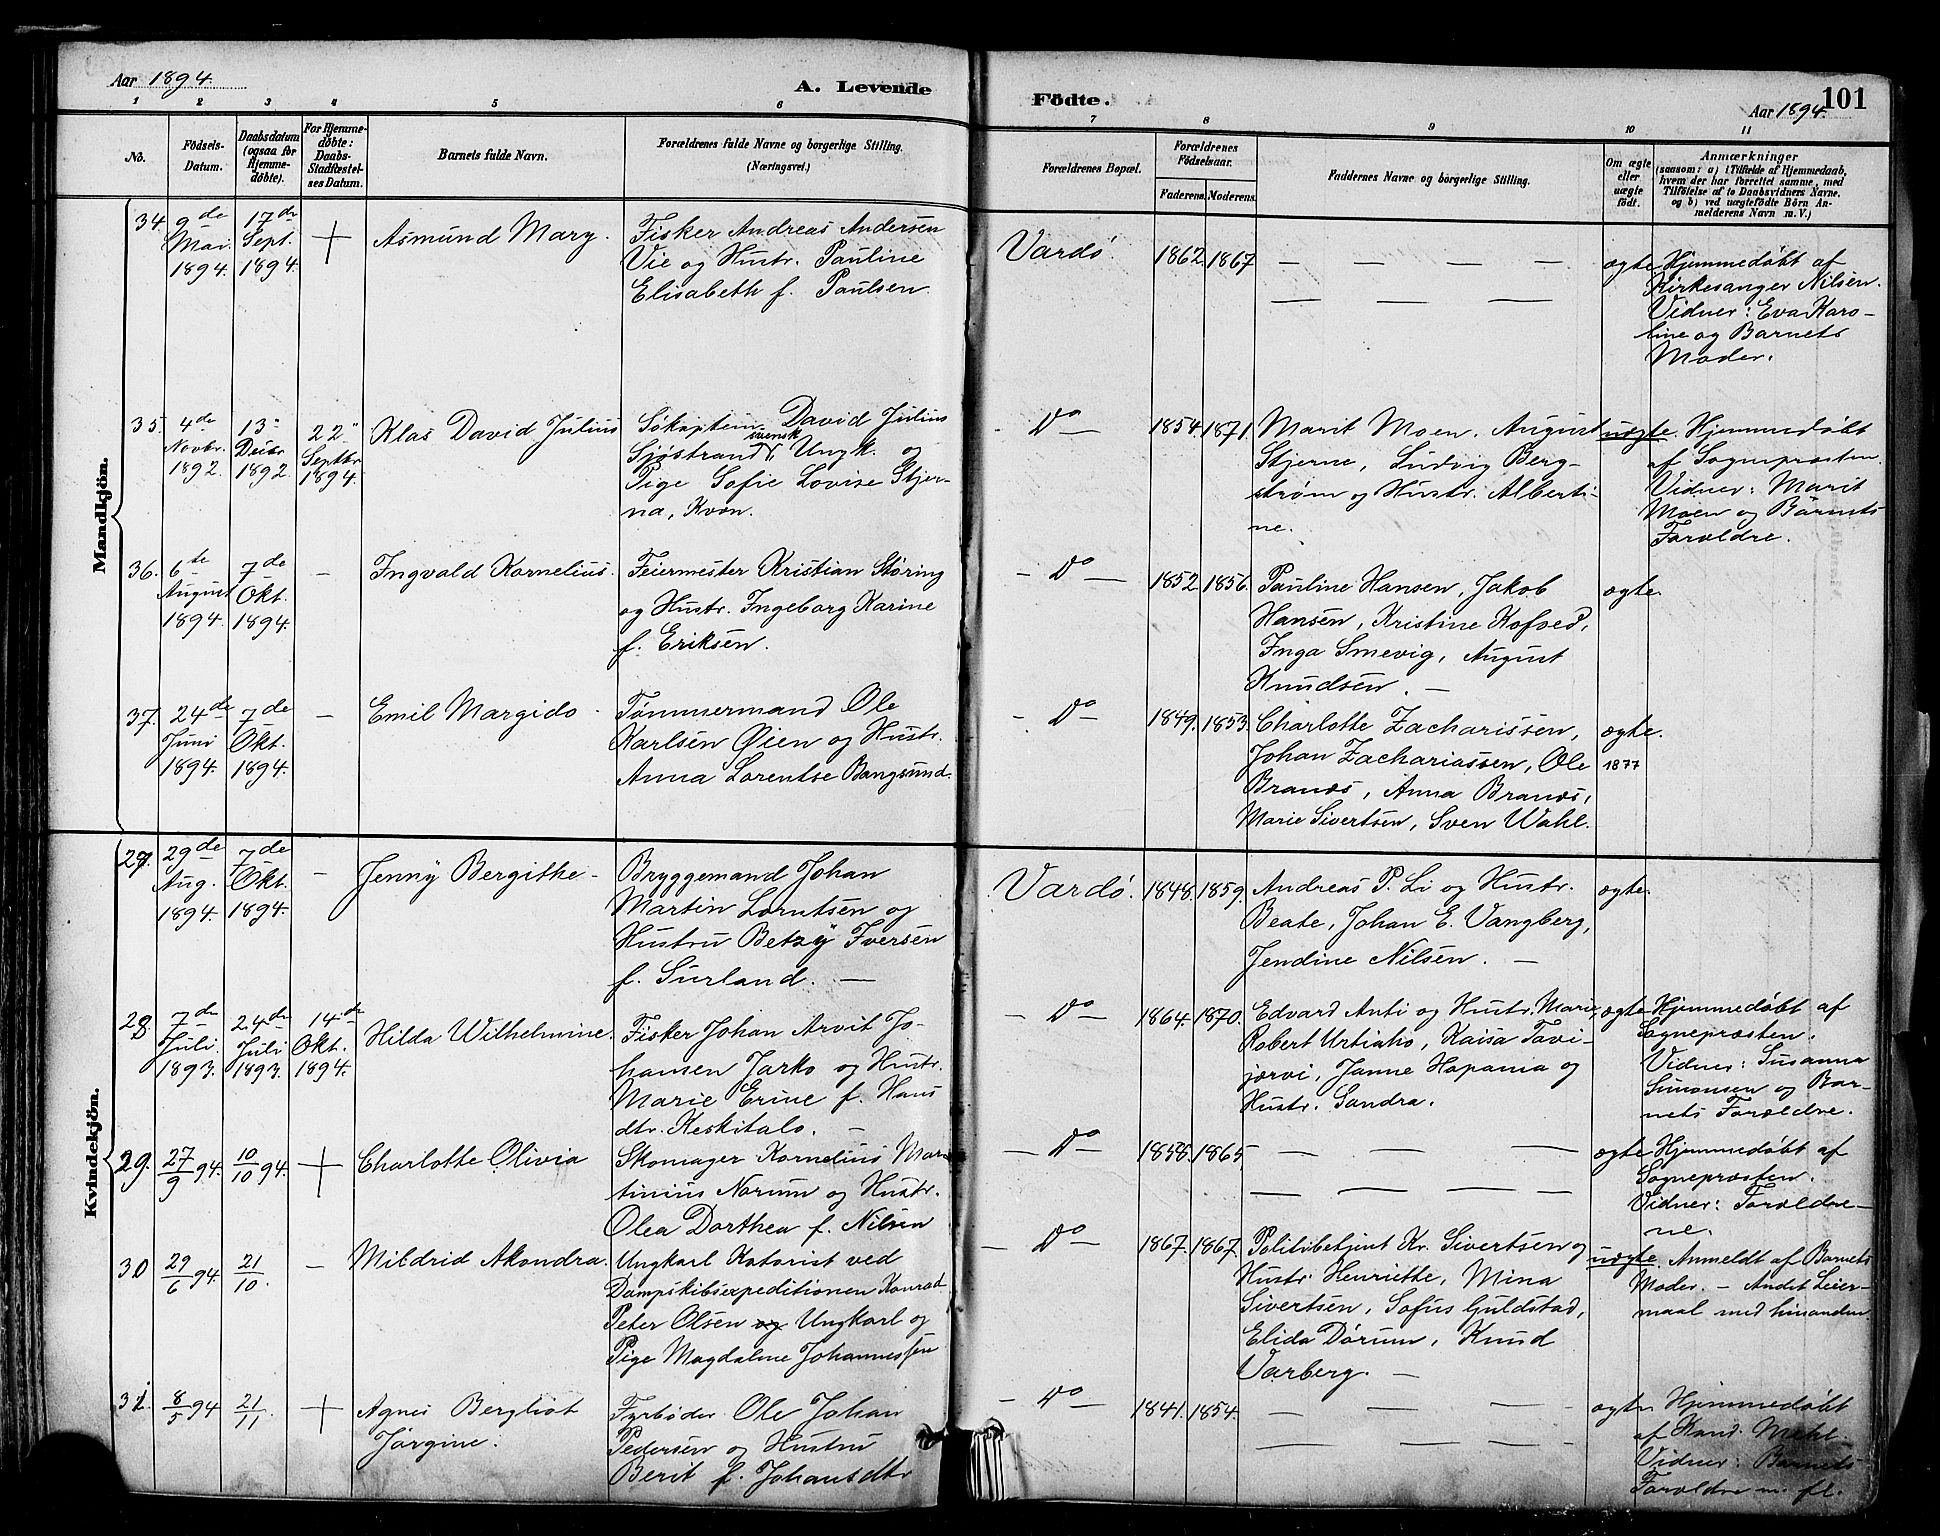 Aar 1894.
A. Levende
Födte.
Aar 1894.
101
1 2 3 4 5 6 7 8 9 10 11
No.
Födsels-
Datum.
Daabsdatum
(ogsaa for
Hjemme-
döbte).
For Hjemme-
döbte:
Daabs-
Stadfæstel-
ses Datum.
Barnets fulde Navn.
Forældrenes fulde Navne og borgerlige Stilling.
(Næringsvei.)
Forældrenes Bopæl.
Forældrenes
Födselsaar.
Faderens. Moderens.
Faddernes Navne og borgerlige Stilling.
Om ægte
eller
uægte
födt.
Anmærkninger
(saasom: a) i Tilfælde af Hjemmedaab,
hvem der har forrettet samme, med
Tilföielse af to Daabsvidners Navne,
og b) ved uægtefödte Börn An-
melderens Navn m. V.)
Mandkjön.
34.
9de
Mai.
1894.
17de
Sept.
1894.
+
Asmund Mary.
Fisker Andreas Andersen
Vie og Hustr. Pauline
Elisabeth f. Paulsen.
Vardø
1862. 1867
— — — —
— — — —
ægte
Hjemmedøbt af
Kirkesanger Nilsen.
Vidner: Eva Karo-
line og Barnets
Moder.
35.
4de
Novbr.
1892.
13"
Decbr
1892
22"
Septbr
1894.
Klas David Julius
Søkaptein David Julius
svensk
Sjöstrand, Ungk. og
Pige Sofie Lovise Stjer-
na, Kvæn.
- Do -
1854. 1871.
Marit Moen. August
Stjerne, Ludvig Berg-
strøm og Hustr. Alberti-
ne.
uægte.
Hjemmedøbt
af Sognepræsten.
Vidner: Marit
Moen og Barnets
Forældre.
36.
6te
August
1894.
7de
Okt.
1894.
-
Ingvald Kornelius.
Feiermester Kristian Støring
og Hustr. Ingeborg Karine
f. Eriksen.
- Do -
1852. 1856.
Pauline Hansen, Jakob
Hansen, Kristine Kofved,
Inga Smevig, August
Knudsen. -
ægte.
37.
24de
Juni
1894.
7de
Okt.
1894.
-
Emil Margido.
Tømmermand Ole
Karlsen Øien og Hustr.
Anna Lorentse Bangsund.
- Do -
1849. 1853.
Charlotte Zacharissen,
Johan Zachariassen, Ole
Brandes, Anna Brandes,
Marie Sivertsen, Sven Wahl.
ægte.
1877
Kvindekjön.
27.
29de
Aug.
1894.
7de
Okt.
1894.
-
Jenny Bergithe -
Bryggemand Johan
Martin Lorntsen og
Hustru Betzy Iversen
f. Surland. -
Vardø.
1848. 1859.
Andreas P. Li og Hustr.
Beate, Johan E. Vangberg,
Jendine Nilsen. -
ægte.
28.
7de
Juli
1893.
24de
Juli
1893.
14de
Okt.
1894.
Hilda Wilhelmine.
Fisker Johan Arvit Jo-
hansen Jarko og Hustr.
Marie Erine f. Hans
dtr. Keskitalo. -
- Do -
1864. 1870.
Edvard Anti og Hustr. Marie,
Robert Urtiaho, Kaisa Tavi-
jærvi, Janne Hapania og
Hustr. Sandra.
ægte
Hjemmedøbt af
Sognepræsten.
Vidner: Susanna
Simonsen og Bar-
nets Forældre.
29.
27/9 94.
10/10 94.
+
Charlotte Olivia
Skomager Kornelius Mar-
tinius Norum og Hustr.
Olea Dorthea f. Nilsen
- Do -
1858. 1865
— — —
— — — —
ægte
Hjemmedøbt af
Sognepræsten.
Vidner: Forældre-
ne.
30
29/6 94
21/10.
-
Mildrid Akondra.
Ungkarl Kotorist ved
Dampskibsexpeditionen Konrad
Peter Olsen og Ungkarl og
Pige Magdalene Johannessen
- Do -
1867. 1867.
Politibetjent Kr. Sivertsen og
Hustr. Henriette, Mina
Sivertsen, Sofus Guldstad,
Elida Dørum, Knud
Varberg. -
uægte.
Anmeldt af Barnets
Moder. - Andet Leier-
maal med hinanden.
31.
8/5 94
21/11.
+
Agnes Bergliot
Jørgine.
Fyrbøder Ole Johan
Pedersen og Hustru
Berit f. Johansdtr
- Do -
1841. 1854.
— — — —
— — — —
ægte
Hjemmedøbt
af Kand. Mehl.
Vidner: Barnets
Forældre m. fl.